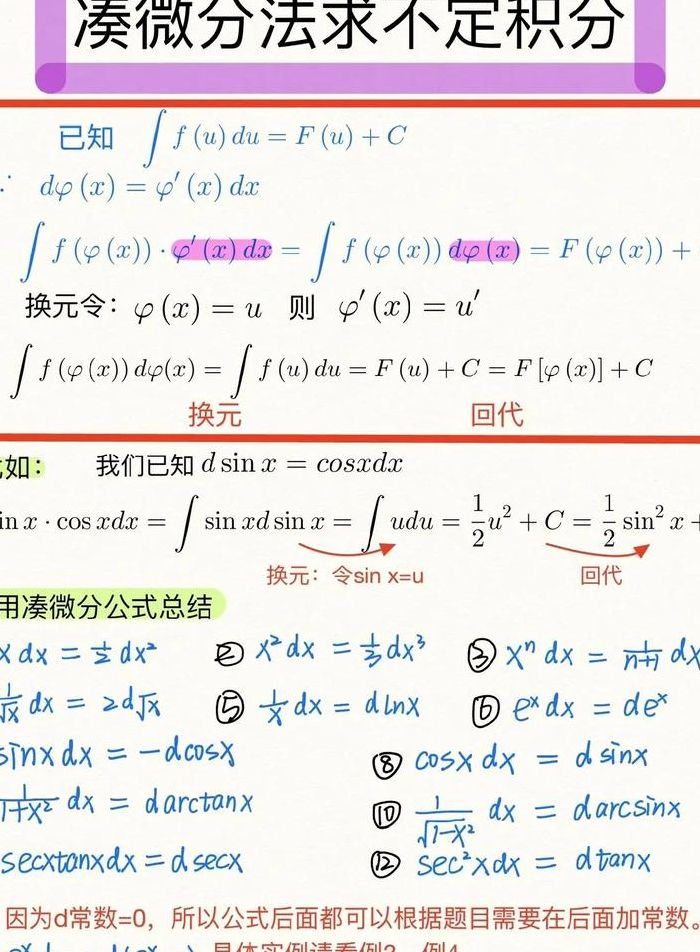 凑微分法求不定积分
已知 ∫ f (u) du = F (u) + C
∵ dφ (x) = φ′ (x) dx
∫ f (φ (x)) · φ′ (x) dx = ∫ f (φ (x)) dφ (x) = F (φ (x)) +
换元令：φ (x) = u 则 φ′ (x) = u′
∫ f (φ (x)) dφ(x) = ∫ f (u) du = F (u) + C = F [φ (x)] + C
换元 回代
如： 我们已知 d sin x = cosxdx
in x · cos xdx = ∫ sin xd sin x = ∫ udu = 1/2 u² + C = 1/2 sin² x +
换元：令sin x=u 回代
用凑微分公式总结
x dx = 1/2 dx² ② x² dx = 1/3 dx³ ③ xⁿ dx = 1/(n+1) dx
1/√x dx = 2d√x ⑤ 1/x dx = d lnx ⑥ eˣ dx = deˣ
sinx dx = -dcosx ⑧ cosx dx = d sinx
1/(1+x²) dx = d arctanx ⑩ 1/√(1-x²) dx = d arcsinx
secxtanxdx = d secx ⑫ sec²xdx = dtanx
因为d常数=0，所以公式后面都可以根据题目需要在后面加常数.
具体实例请看例3、例4